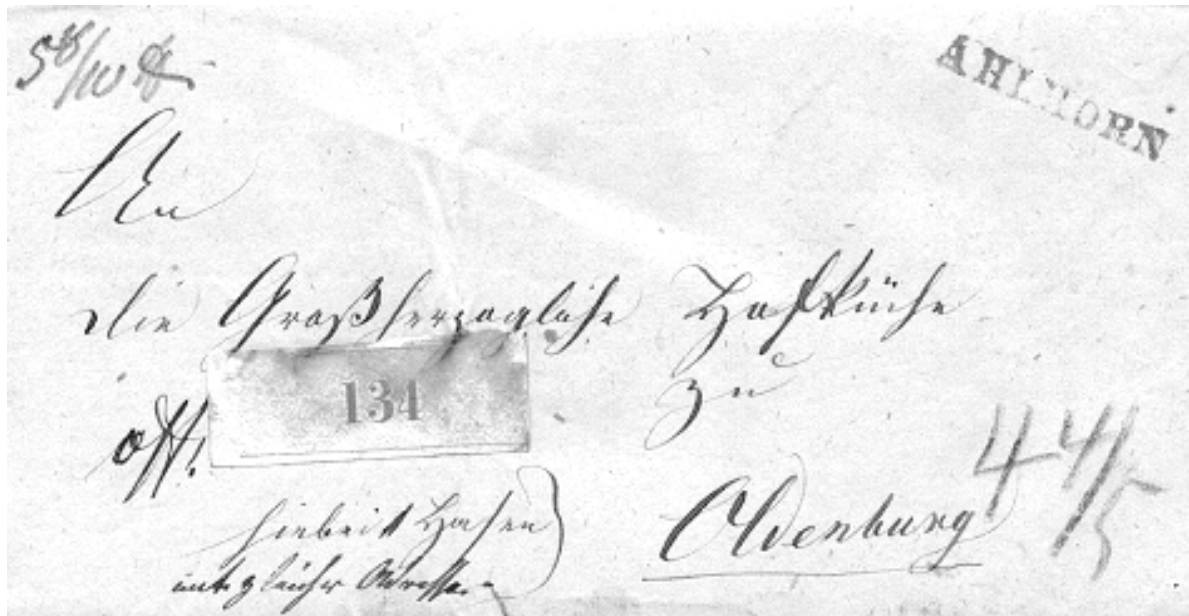 AHLHORN
An
die Großherzogliche Hofküche
134
zu
Oldenburg
44/5
hiebei Hasen
mit gleicher Adresse.